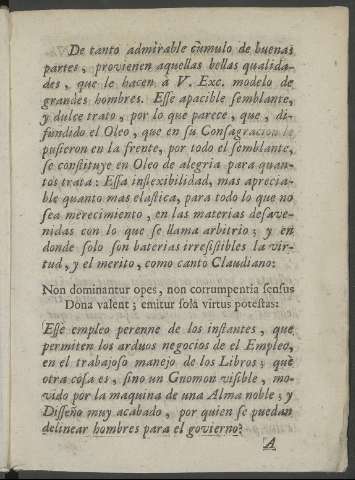 De tanto admirable cumulo de buenas
partes, provienen aquellas bellas qualida-
des, que le hacen à V. Exc. modelo de
grandes hombres. Esse apacible semblante,
y dulce trato, por lo que parece, que, di-
fundido el Oleo, que en su Consagracion le
pusieron en la frente, por todo el semblante,
se constituye en Oleo de alegria para quan-
tos trata: Essa inflexibilidad, mas aprecia-
ble quanto mas elastica, para todo lo que no
sea merecimiento, en las materias desave-
nidas con lo que se llama arbitrio; y en
donde solo son baterias irresistibles la vir-
tud, y el merito, como canto Claudiano:
Non dominantur opes, non corrumpentia sensus
Dona valent; emitur sola virtus potestas:
Esse empleo perenne de los instantes, que
permiten los arduos negocios de el Empleo,
en el trabajoso manejo de los Libros; què
otra cosa es, sino un Gnomon visible, mo-
vido por la maquina de una Alma noble; y
Disseño muy acabado, por quien se puedan
delinear hombres para el govierno?
A